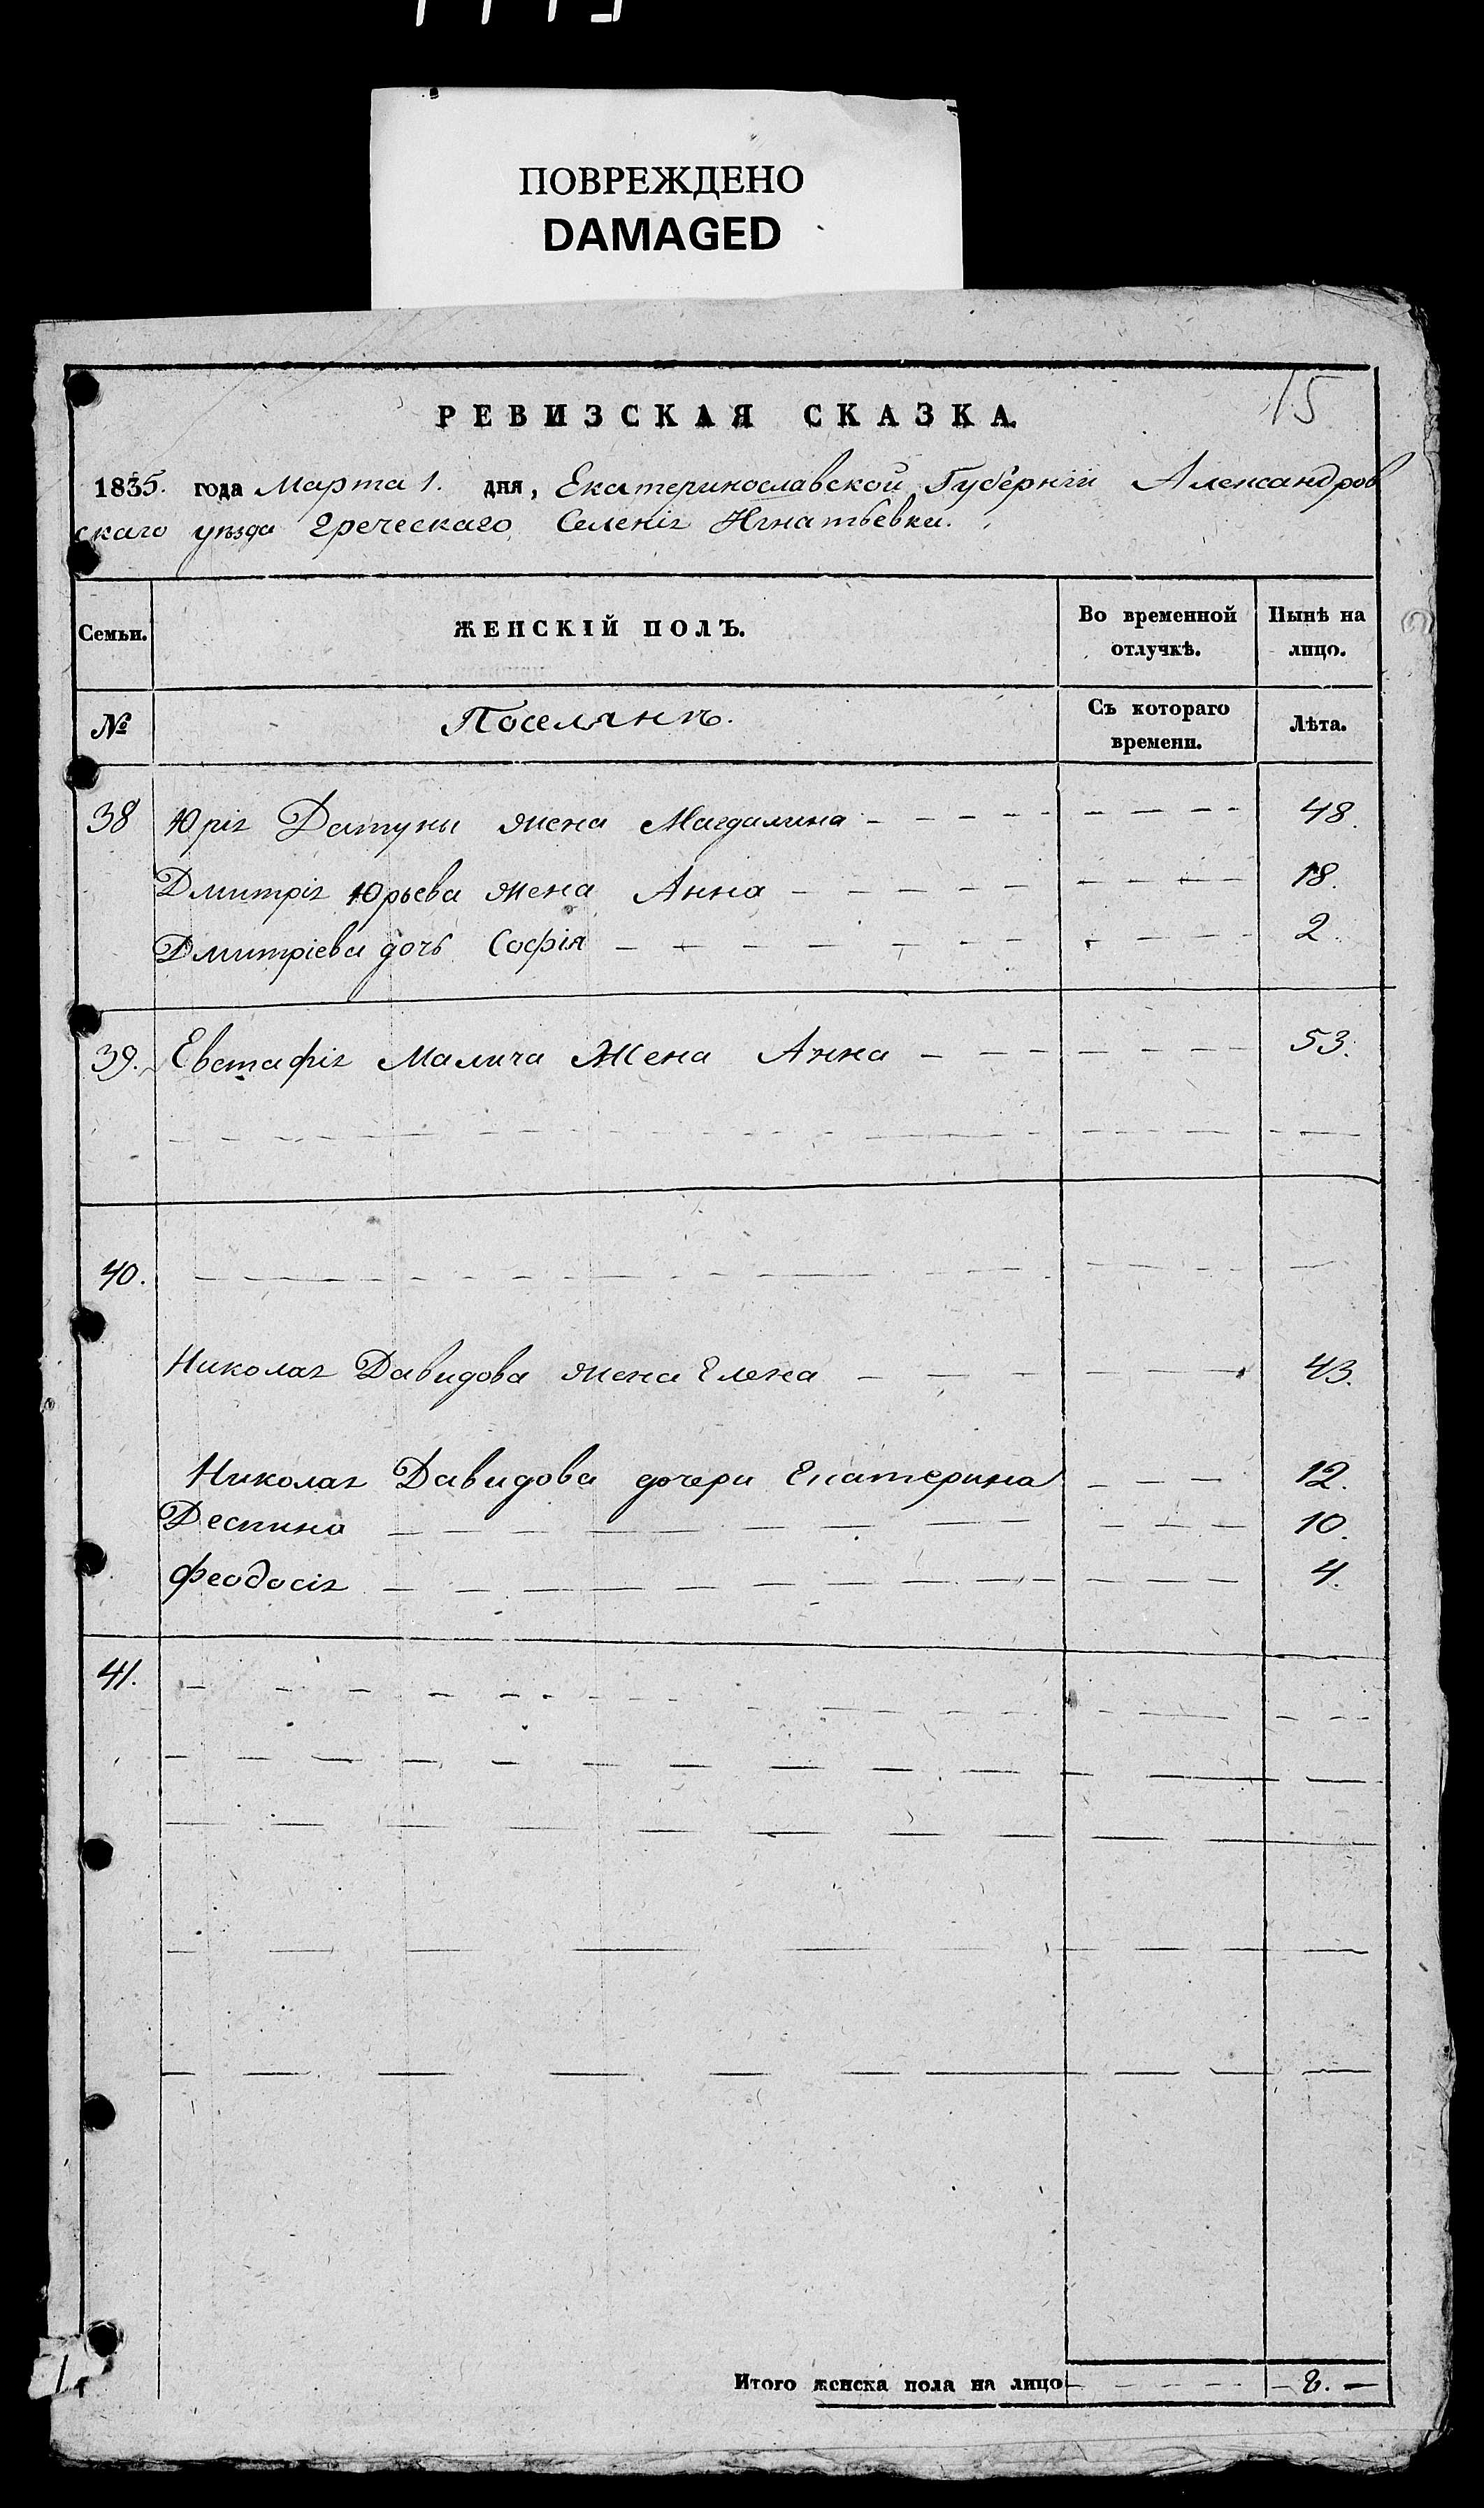 ПОВРЕЖДЕНО
DAMAGED
15
РЕВИЗСКАЯ СКАЗКА.
1835. года Марта 1. дня, Екатеринославской Губерніи Александров
скаго уѣзда Греческаго Селенія Игнатьевки.
Семьи.
ЖЕНСКІЙ ПОЛЪ.
Во временной отлучкѣ.
Нынѣ на лицо.
№
Поселянъ.
Съ котораго времени.
Лѣта.
38 Юрія Датуны жена Магдалина 48.
Дмитрія Юрьева жена Анна 18.
Дмитріева дочь Софія 2.
39. Евстафія Малича Жена Анна 53.
40.
Николая Давидова жена Елена 43.
Николая Давидова дочери Екатерина 12.
Деспина 10.
Феодосія 4.
41.
Итого женска пола на лицо 8.